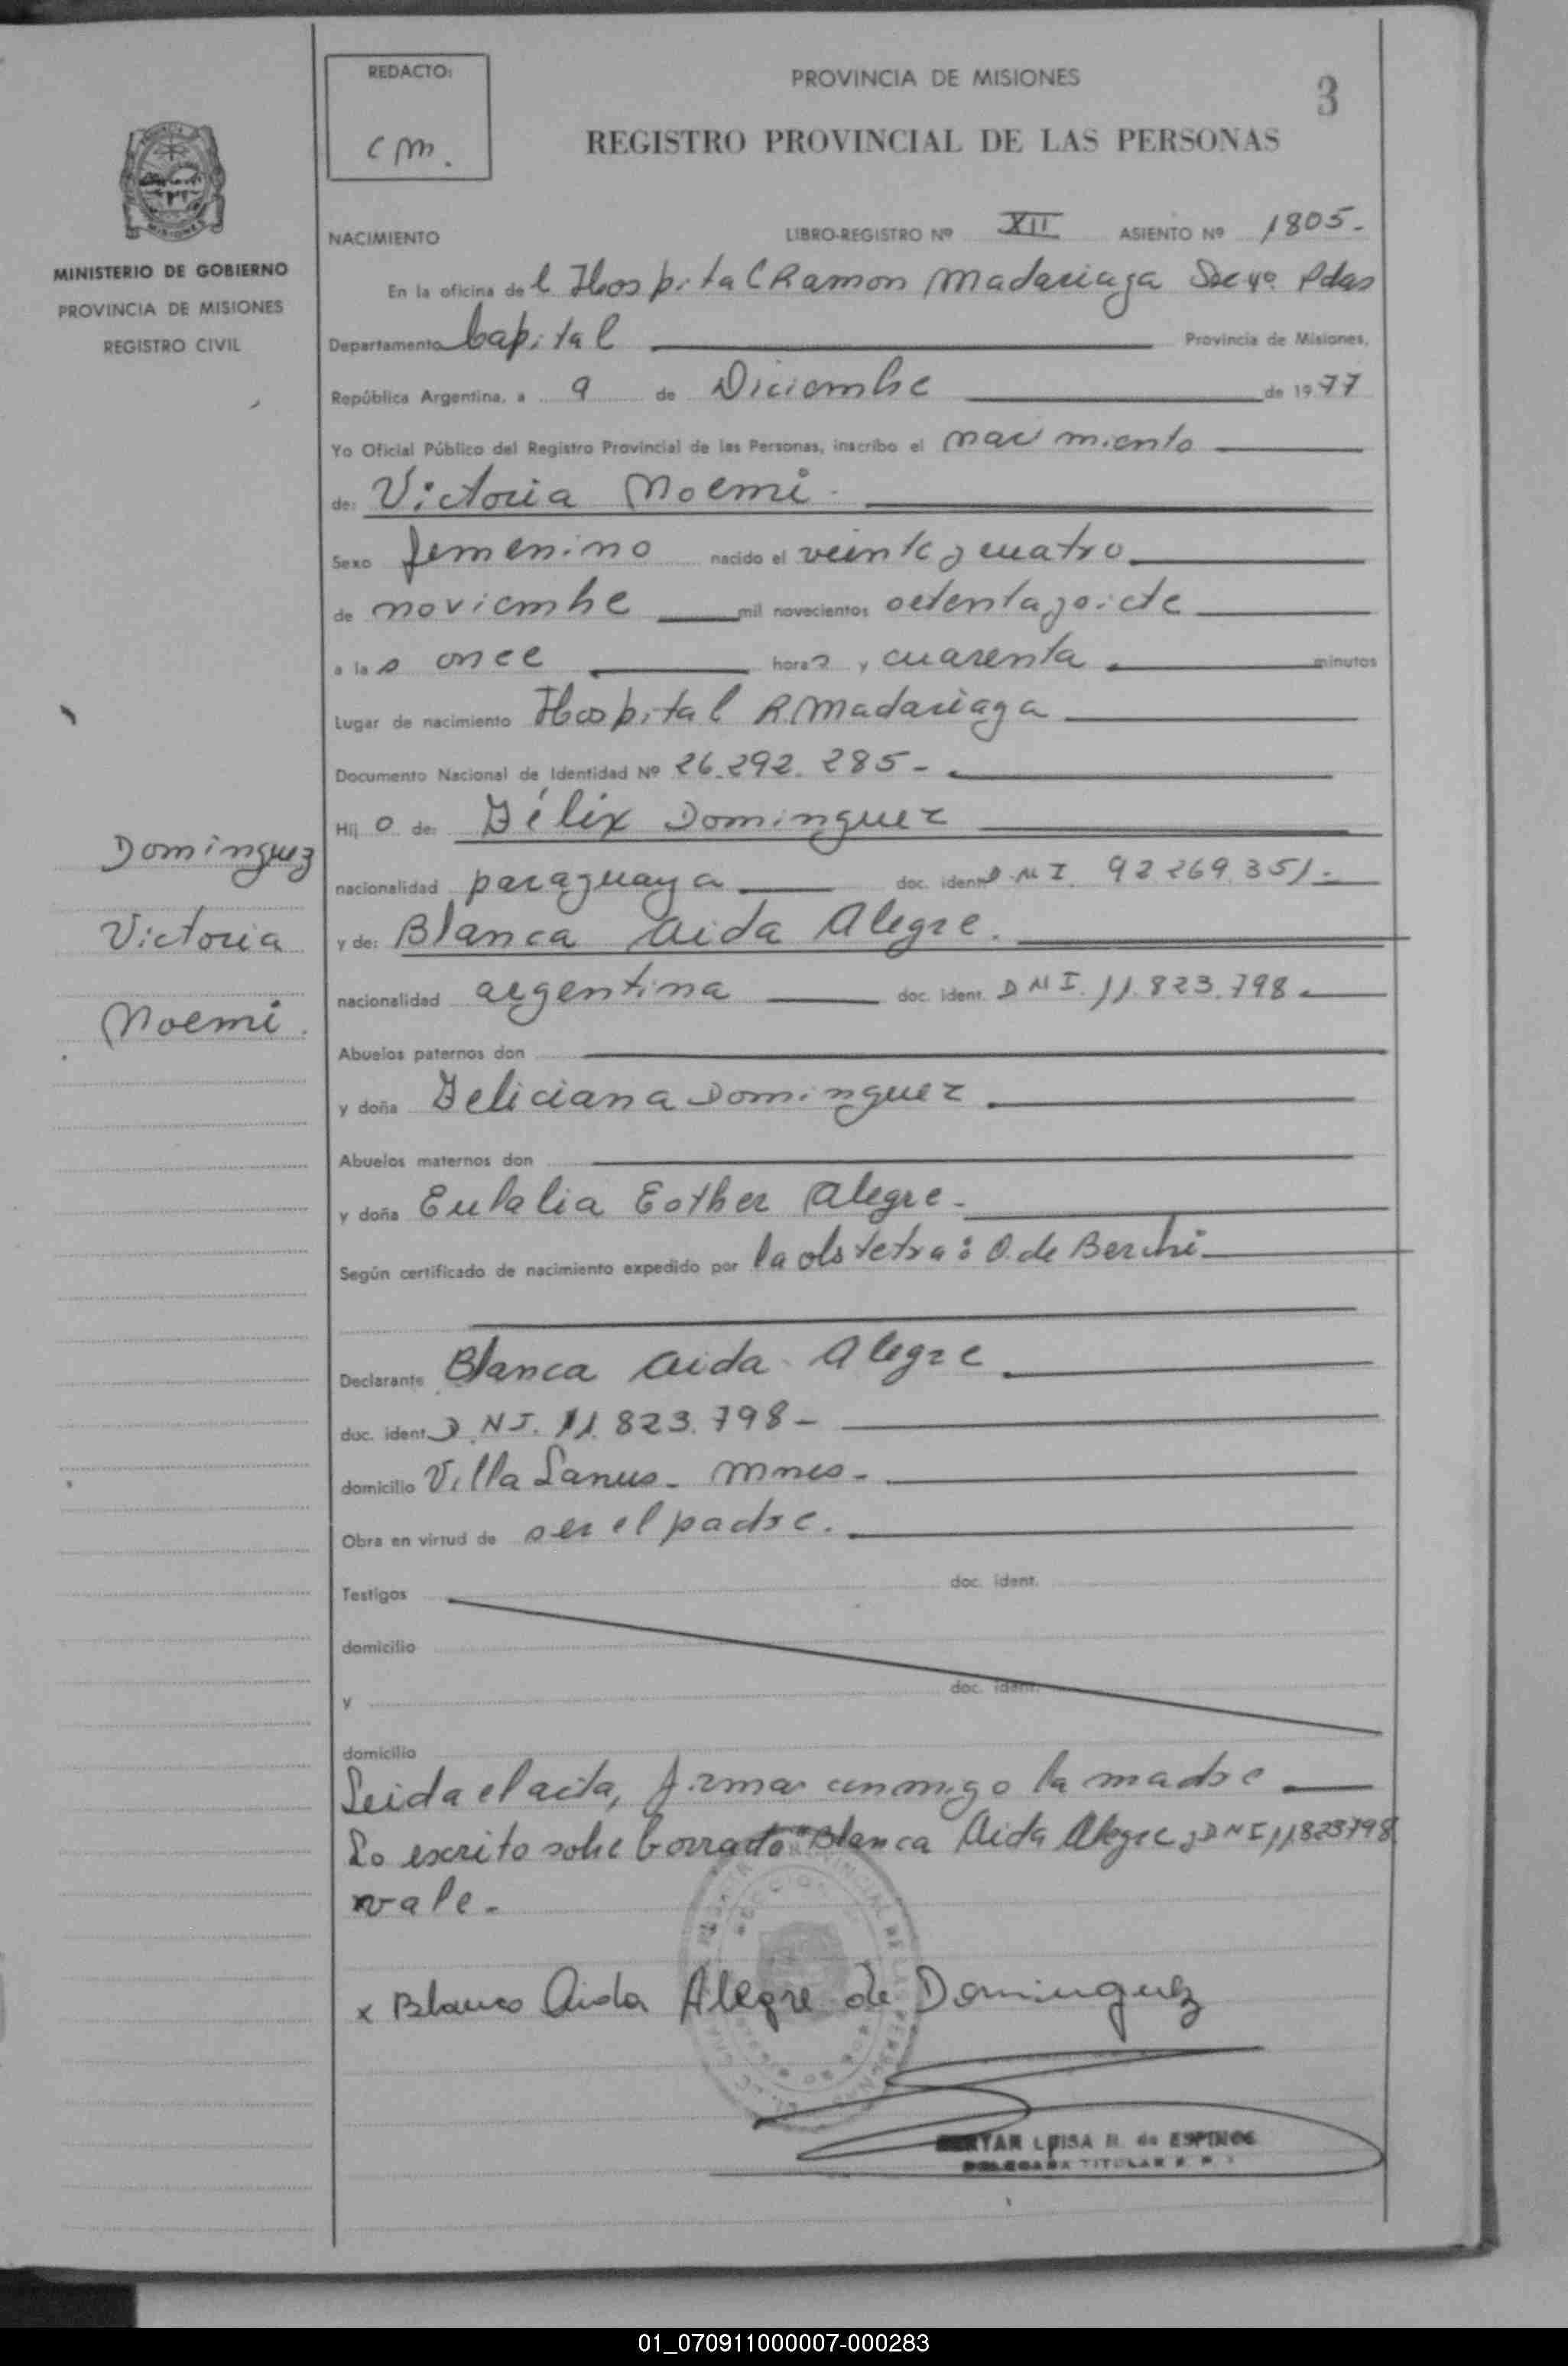 REDACTO:
cm.
PROVINCIA DE MISIONES
3
REGISTRO PROVINCIAL DE LAS PERSONAS
MINISTERIO DE GOBIERNO
PROVINCIA DE MISIONES
REGISTRO CIVIL
NACIMIENTO LIBRO-REGISTRO Nº XII ASIENTO Nº 1805.-
En la oficina del Hospital Ramon Madariaga Pdas
Departamento Capital Provincia de Misiones,
República Argentina, a 9 de Diciembre de 1977
Yo Oficial Público del Registro Provincial de las Personas, inscribo el nacimiento
de: Victoria Noemi.
Sexo femenino nacido el veinte y cuatro
de noviembre mil novecientos setenta y siete
a las once horas y cuarenta minutos
Lugar de nacimiento Hospital R. Madariaga
Documento Nacional de Identidad Nº 26.292.285-
Hijo de: Félix Dominguez
nacionalidad paraguaya doc. ident. D.N.I. 92.269.351.-
y de: Blanca Aida Alegre.
nacionalidad argentina doc. ident. D N I. 11.823.798.
Abuelos paternos don
y doña Feliciana Dominguez
Abuelos maternos don
y doña Eulalia Esther Alegre-
Según certificado de nacimiento expedido por la obstetra: O. de Berchi
Declarante Blanca Aida Alegre
doc. ident. D.N.I. 11.823.798-
domicilio Villa Lanus- Mnes-
Obra en virtud de ser el padre.
Testigos doc. ident.
domicilio
y doc. ident.
domicilio
Leida el acta, firma conmigo la madre
Lo escrito sobre borrado "Blanca Aida Alegre y DNI 11823798
vale.-
Dominguez
Victoria
Noemi.
x Blanca Aida Alegre de Dominguez
LUISA de ESPINOS
TITULAR
01_070911000007-000283